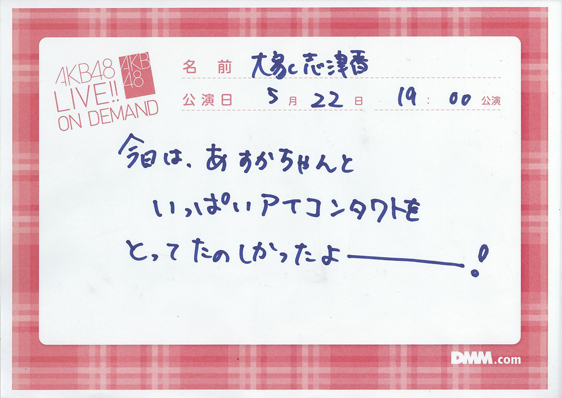 AKB48
LIVE!!
ON DEMAND
AKB
48
名前 大家志津香
公演日 5月22日 19:00公演
今日は、あすかちゃんと
いっぱいアイコンタクトを
とってたのしかったよー!
DMM.com